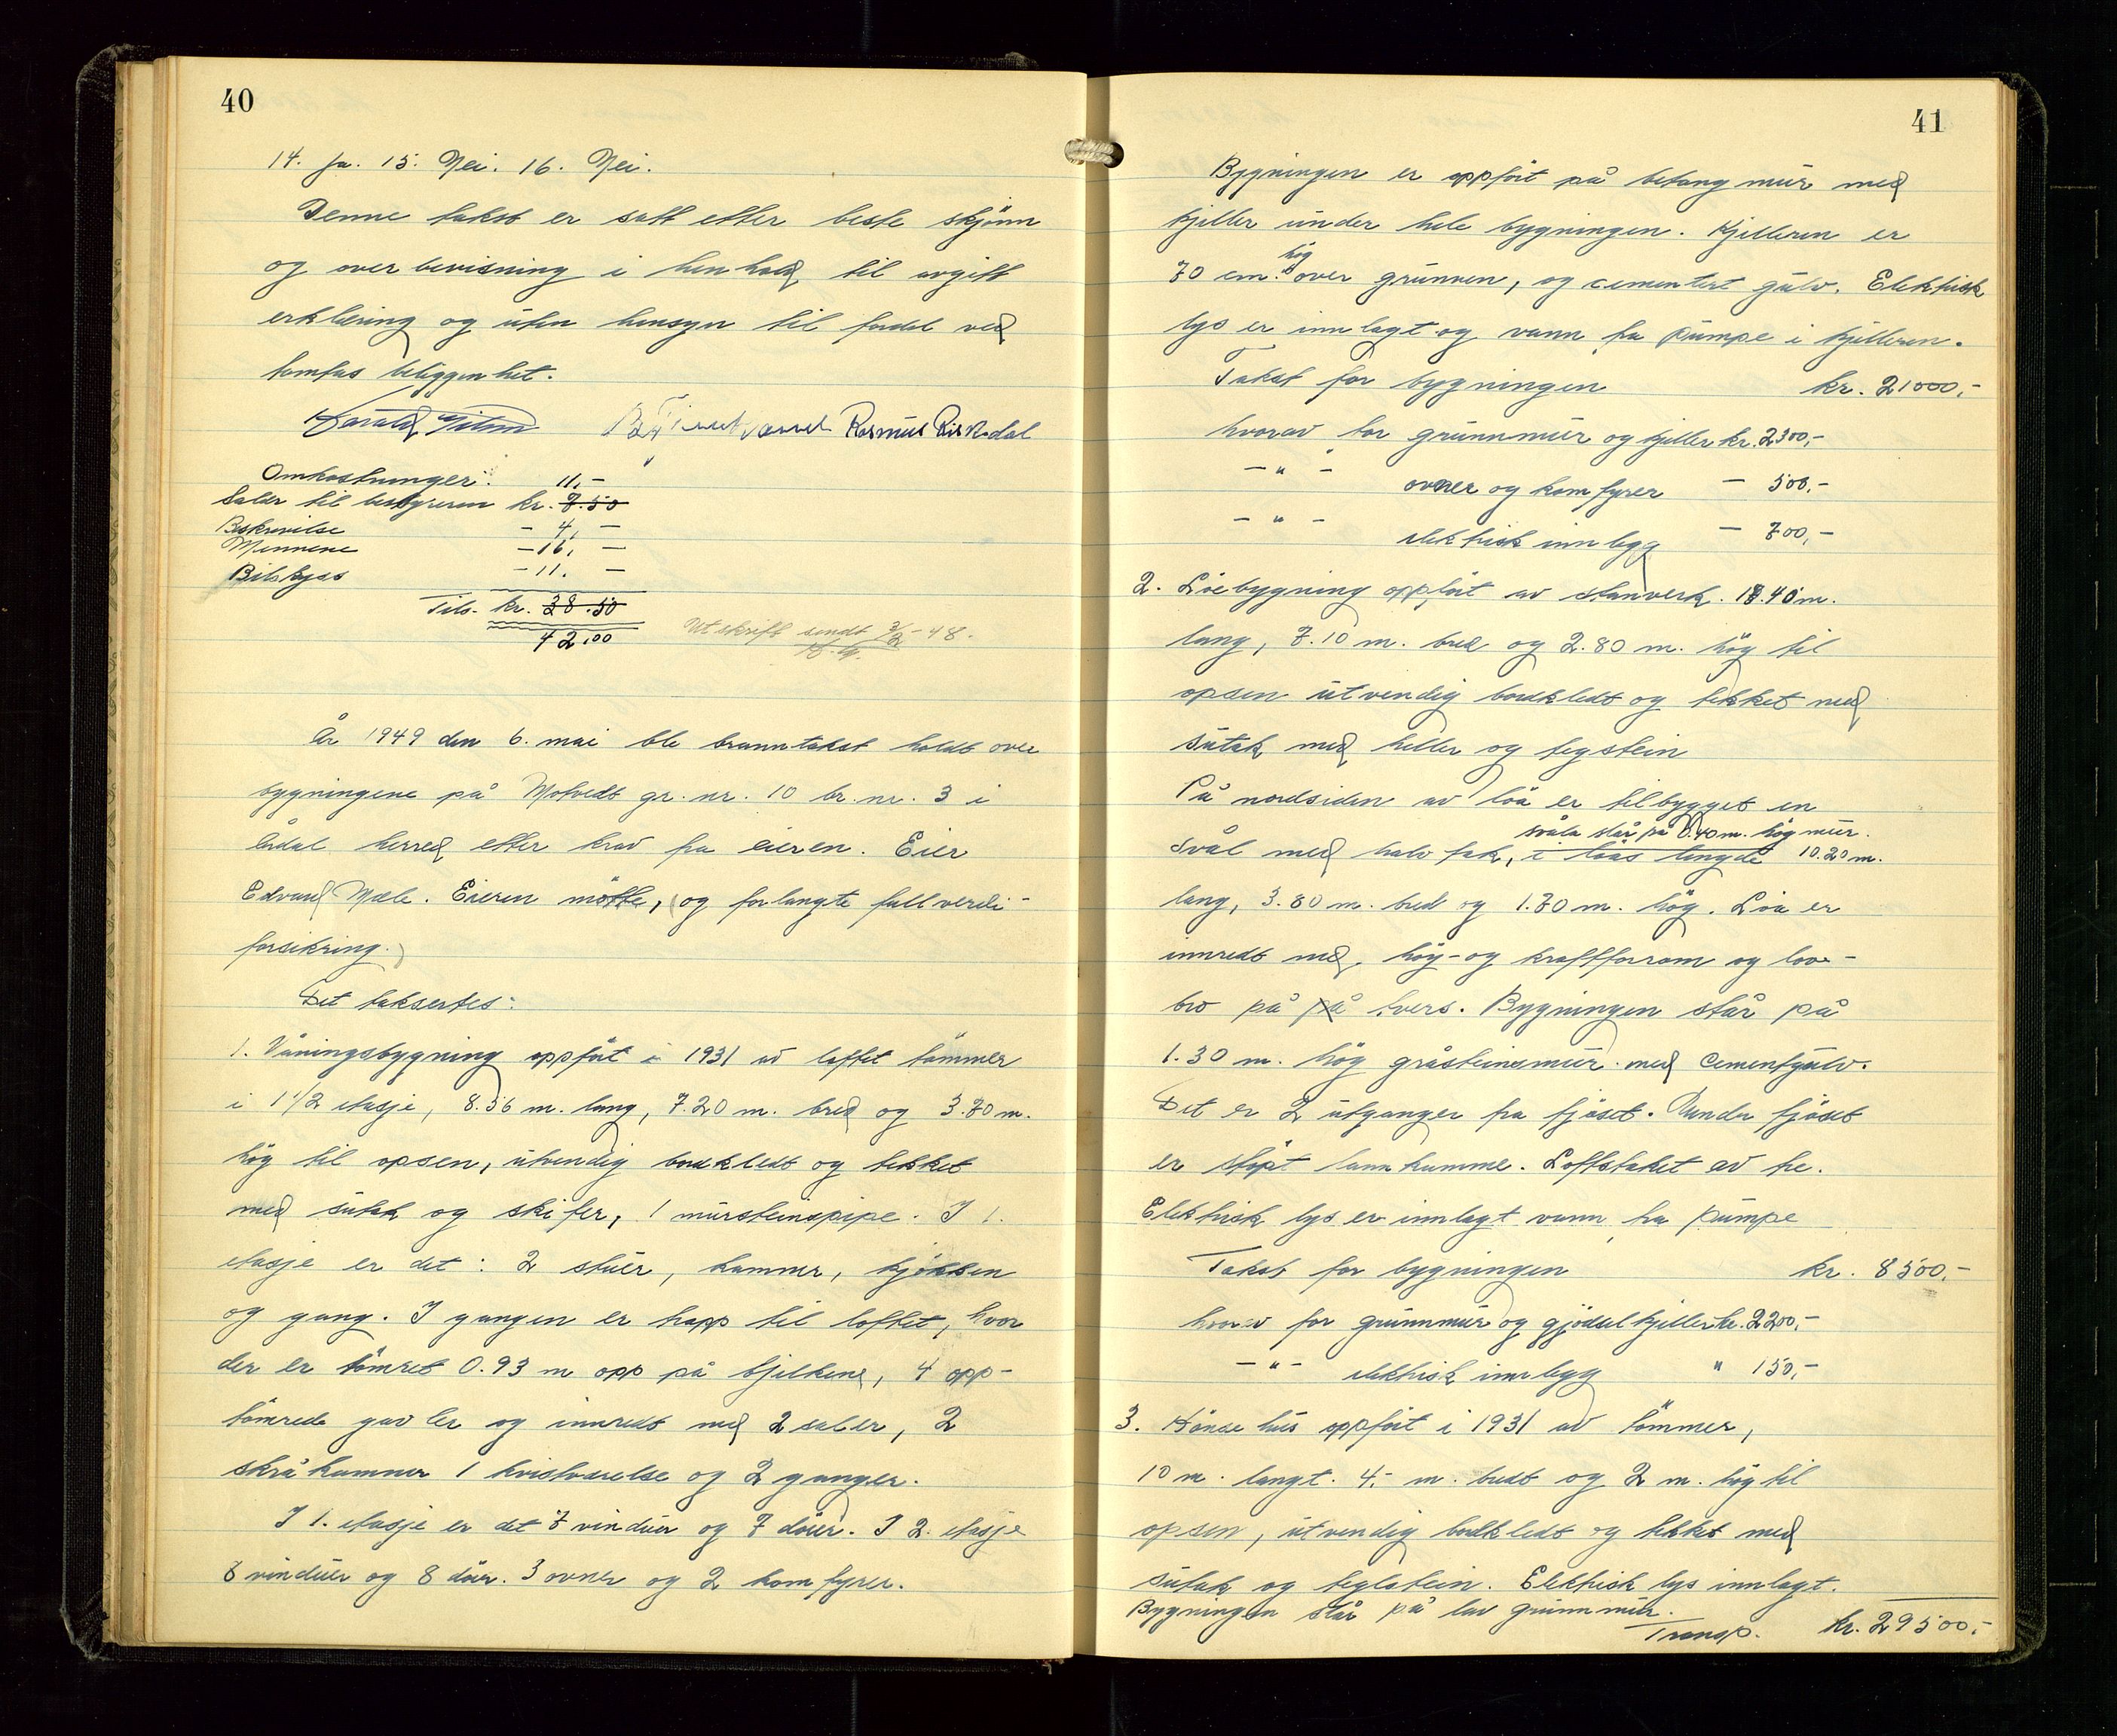 40
14. Ja. 15. Nei. 16. Nei.
Denne takst er satt etter beste skjönn
og overbevisning i henhold til avgitt
erklæring og uten hensyn til fordel ved
tomtas beliggenhet.
Harald Rasmus Riskedal
Omkostninger: 11,-
Salær til bestyreren kr. 7.50
Beskrivelse - 4, -
Mennene - 16, -
Bilskyss - 11. -
Tils. kr. 38.50
42,00
Utskrift sendt 3/2 - 48.
År 1949 den 6. mai ble branntakst holdt over
bygningene på Mofvedt gr. nr. 10 br. nr. 3 i
Årdal herred etter krav fra eieren. Eier
Edvard Mæle. Eieren møtte, (og forlangte fullverdi-
forsikring.)
Det taksertes:
1. Våningsbygning oppfört i 1931 av loftet tömmer
i 1 1/2 etasje, 8.56 m. lang, 7.20 m. bred og 3.70 m.
hög til opsen, utvendig bordkledt og tekket
med sutak og skifer, 1 mursteinspipe. I 1.
etasje er det: 2 stuer, kammer, kjøkken
og gang. I gangen er trapp til loftet, hvor
der er tömret 0.93 m opp på bjelkene, 4 opp-
tömrede gavler og innredt med 2 saler, 2
skråkammer 1 kvistværelse og 2 ganger.
I 1. etasje er det 7 vinduer og 7 dörer. I 2. etasje
8 vinduer og 8 dörer. 3 ovner og 2 komfyrer.
41
Bygningen er oppfört på betong mur med
kjeller under hele bygningen. Kjelleren er
hög
70 cm. over grunnen, og cementert gulv. Elektrisk
lys er innlagt og vann fra pumpe i kjelleren.
Takst for bygningen kr. 21000,-
hvorav for grunnmur og kjeller kr. 2300,-
- " - ovner og komfyrer - 500,-
- " - elektrisk innlegg - 700,-
2. Löebygning oppfört av stavverk. 18.40 m.
lang, 7.10 m. bred og 2.80 m. hög til
opsen utvendig bordkledt og tekket med
sutak med heller og tegstein
På nordsiden av löa er tilbygget en
svåla står på 0.40 m. hög mur.
svål med halv tak, i löas lengde 10.20 m.
lang, 3.80 m. bred og 1.70 m. hög. Löa er
innredt med höy- og kraftforrom og love-
bro på på tvers. Bygningen står på
1.30 m. hög gråsteinsmur med cementgulv.
Det er 2 utganger fra fjöset. Under fjöset
er stöpt landkumme. Loftstaket av tre.
Elektrisk lys er innlagt vann fra pumpe
Takst for bygningen kr. 8500,-
hvorav for grunnmur og gjödselkjeller kr. 2200,-
- " - elektrisk innlegg " 150,-
3. Hönsehus oppfört i 1931 av tömmer,
10 m. langt. 4,- m. bredt og 2 m. hög til
opsen, utvendig bordkledt og tekket med
sutak og teglstein. Elektrisk lys innlagt.
Bygningen står på lav grunnmur.
Transp. kr. 29500,-